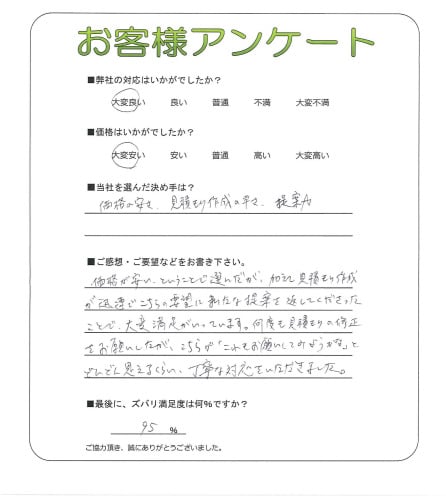 お客様アンケート
■弊社の対応はいかがでしたか？
大変良い 良い 普通 不満 大変不満
■価格はいかがでしたか？
大変安い 安い 普通 高い 大変高い
■当社を選んだ決め手は？
価格の安さ、見積もり作成の早さ、提案力
■ご感想・ご要望などをお書き下さい。
価格が安い、ということで選んだが、加えて見積もり作成
が迅速でこちらの要望に新たな提案を返してくださった
ことで、大変満足がいっています。何度も見積もりの修正
をお願いしたが、こちらが「これもお願いしてみようかな」と
どんどん思えるくらい、丁寧な対応をいただきました。
■最後に、ズバリ満足度は何%ですか？
95 %
ご協力頂き、誠にありがとうございました。